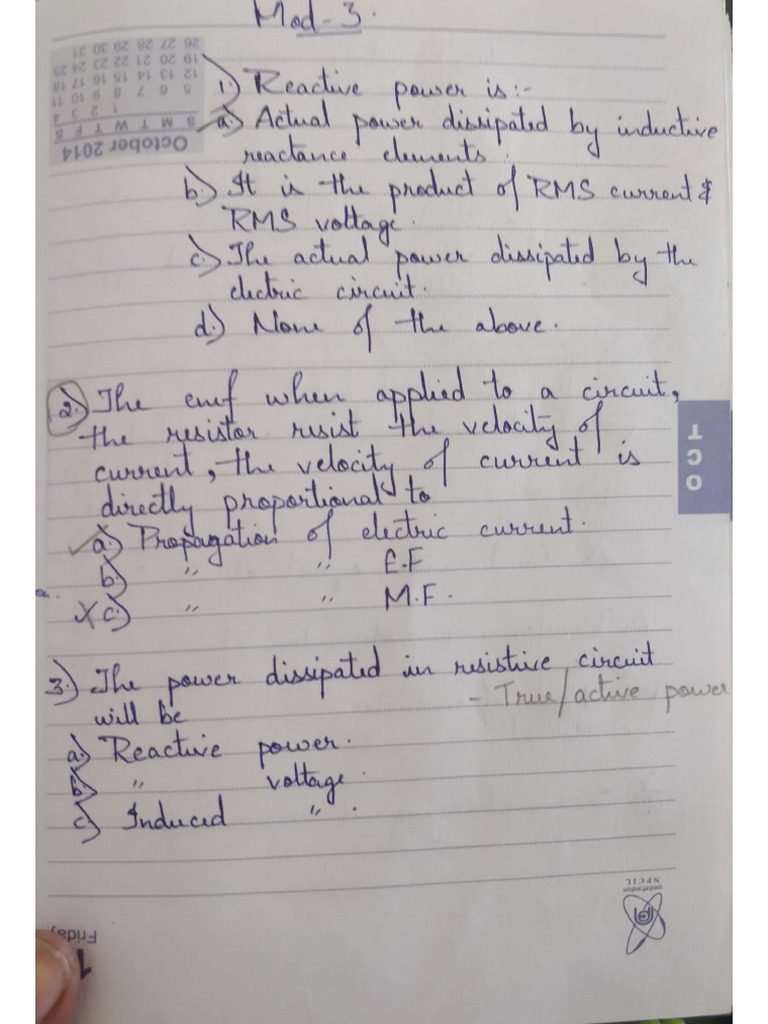 Mod-3.
October 2014
S M T W T F S
1 2 3 4
5 6 7 8 9 10 11
12 13 14 15 16 17 18
19 20 21 22 23 24 25
26 27 28 29 30 31
1.) Reactive power is:-
a.) Actual power dissipated by inductive
reactance elements.
b.) It is the product of RMS current &
RMS voltage.
c.) The actual power dissipated by the
electric circuit.
d.) None of the above.
2.) The emf when applied to a circuit,
the resistor resist the velocity of
current, the velocity of current is
directly proportional to
a.) Propagation of electric current.
b.) " " E.F
c.) " " M.F.
OCT
3.) The power dissipated in resistive circuit
will be - True/active power
a.) Reactive power.
b.) " voltage.
c.) Induced " .
NPCIL
Friday
1